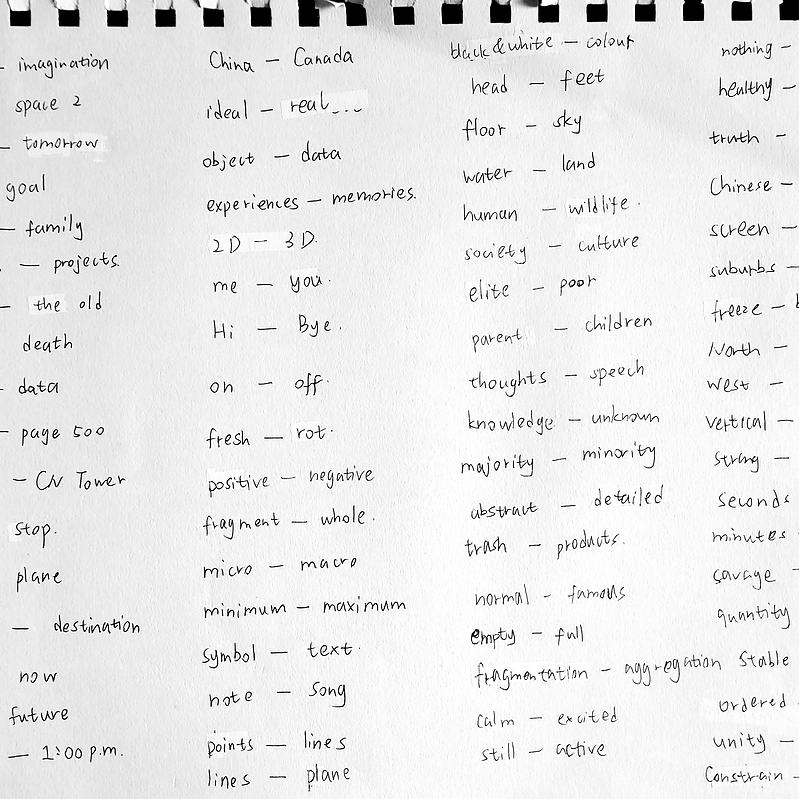 – imagination
space 2
– tomorrow
goal
– family
– projects.
– the old
death
– data
– page 500
– CN Tower
stop.
plane
– destination
now
future
– 1:00 p.m.
China – Canada
ideal – real...
object – data
experiences – memories.
2D – 3D.
me – you.
Hi – Bye.
on – off.
fresh – rot.
positive – negative
fragment – whole.
micro – macro
minimum – maximum
symbol – text.
note – song
points – lines
lines – plane
black & white – colour
head – feet
floor – sky
water – land
human – wildlife.
society – culture
elite – poor
parent – children
thoughts – speech
knowledge – unknown
majority – minority
abstract – detailed
trash – products.
normal – famous
empty – full
fragmentation – aggregation
calm – excited
still – active
nothing –
healthy –
truth –
Chinese –
screen –
suburbs –
freeze –
North –
west –
vertical –
strong –
seconds
minutes
savage
quantity
Stable
ordered
unity –
Constrain –